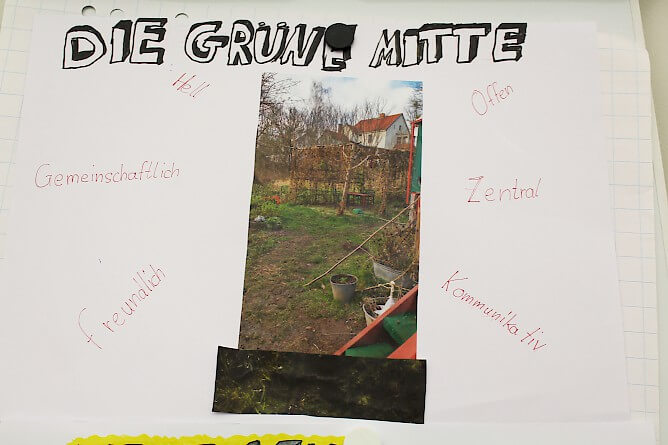 DIE GRÜNE MITTE
Hell
Offen
Gemeinschaftlich
Zentral
freundlich
Kommunikativ